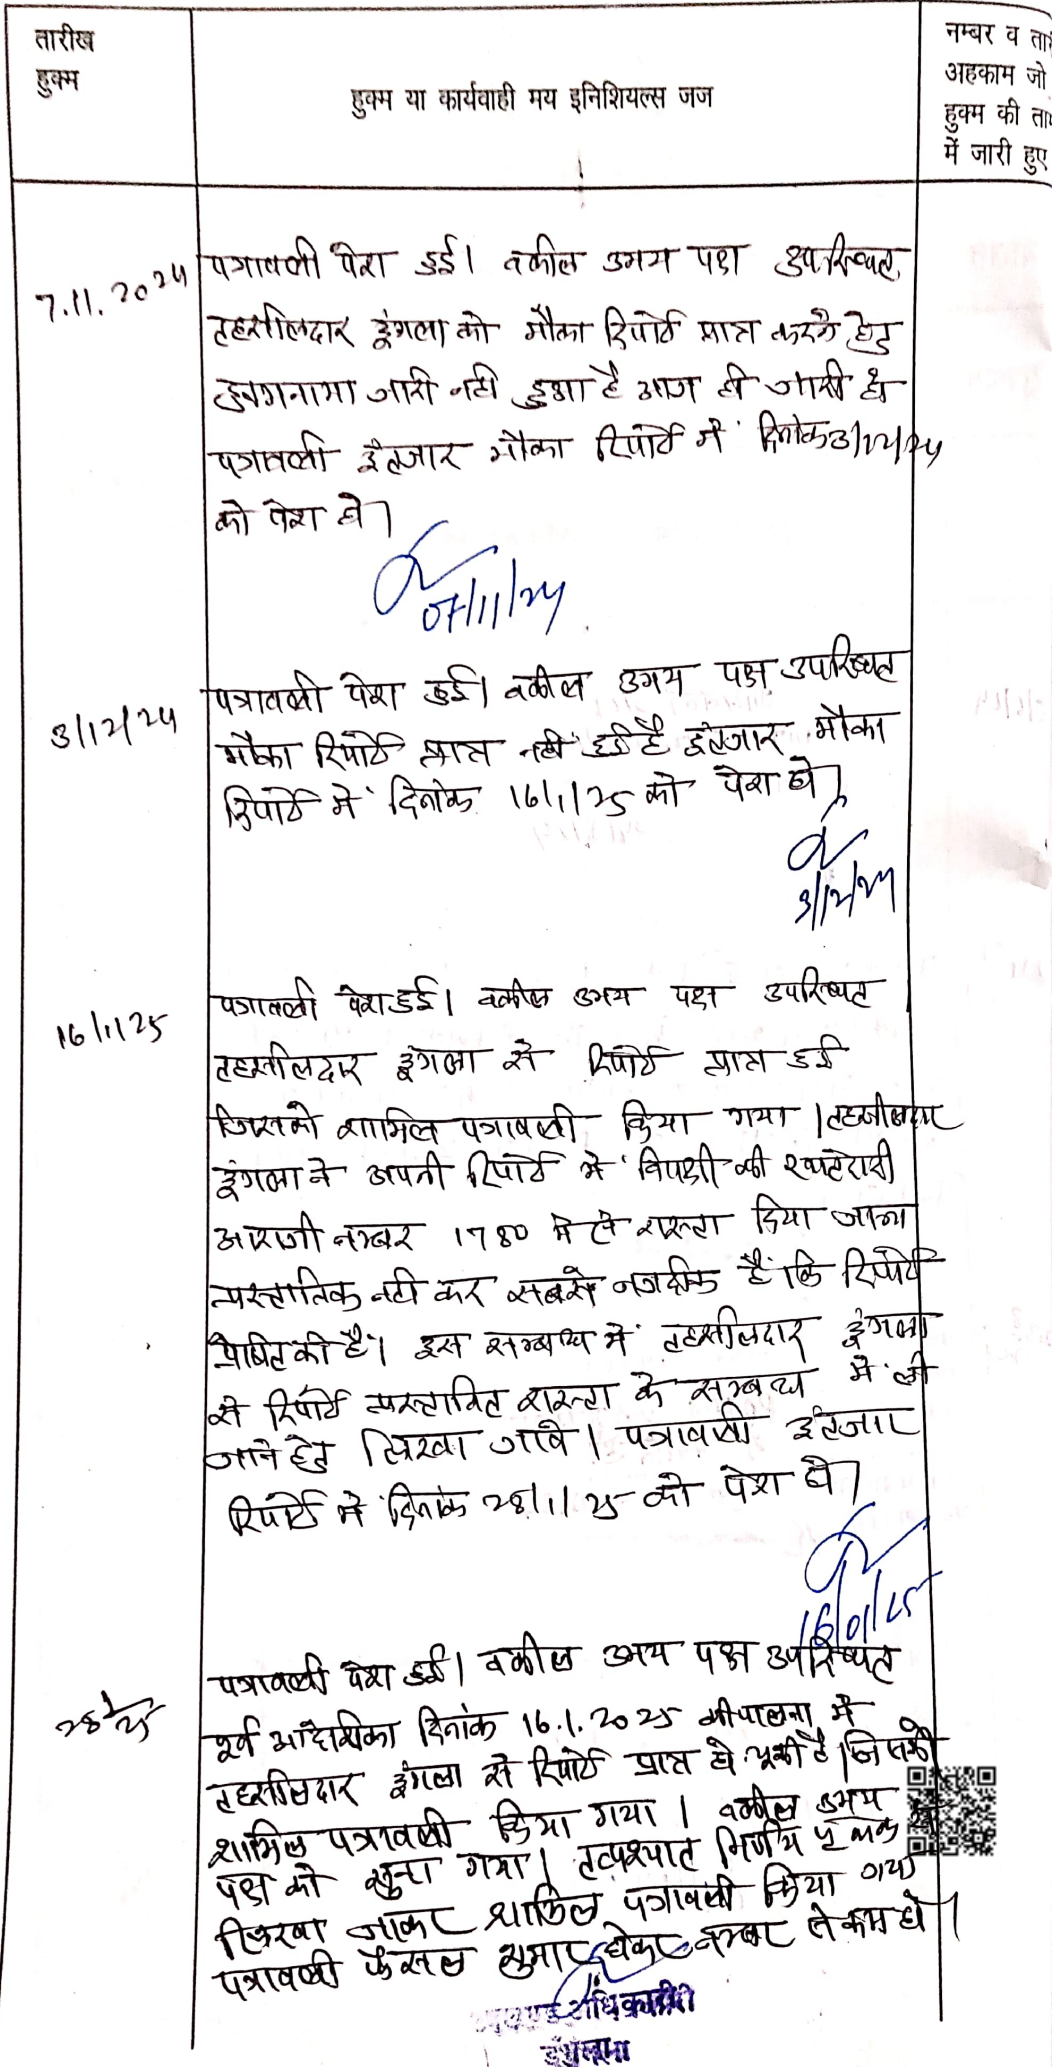 तारीख
हुक्म
हुक्म या कार्यवाही मय इनिशियल्स जज
नम्बर व ता
अहकाम जो
हुक्म की ता
में जारी हुए
7.11.2024
पत्रावली पेश हुई। वकील उभय पक्ष उपस्थित
तहसीलदार डूंगला को मौका रिपोर्ट प्राप्त करने हेतु
हुक्मनामा जारी नही हुआ है आज ही जारी हो
पत्रावली इंतजार मौका रिपोर्ट में दिनांक 3/12/24
को पेश हो।
07/11/24
3/12/24
पत्रावली पेश हुई। वकील उभय पक्ष उपस्थित
मौका रिपोर्ट प्राप्त नही हुई है इंतजार मौका
रिपोर्ट में दिनांक 16/1/25 को पेश हो।
3/12/24
16/1/25
पत्रावली पेश हुई। वकील उभय पक्ष उपस्थित
तहसीलदार डूंगला से रिपोर्ट प्राप्त हुई
जिसको शामिल पत्रावली किया गया। तहसीलदार
डूंगला ने अपनी रिपोर्ट में विपक्षी की खातेदारी
आराजी नम्बर 1780 में से रास्ता दिया जाना
प्रस्तावित नही कर सबसे नजदीक है कि रिपोर्ट
प्रेषित की है। इस सम्बन्ध में तहसीलदार डूंगला
से रिपोर्ट प्रस्तावित रास्ता के सम्बन्ध में ली
जाने हेतु लिखा जावे। पत्रावली इंतजार
रिपोर्ट में दिनांक 28/1/25 को पेश हो।
16/01/25
28/1/25
पत्रावली पेश हुई। वकील उभय पक्ष उपस्थित
पूर्व आदेशिका दिनांक 16.1.2025 की पालना में
तहसीलदार डूंगला से रिपोर्ट प्राप्त हो चुकी है। जिसको
शामिल पत्रावली किया गया। वकील उभय
पक्ष को सुना गया। तत्पश्चात निर्णय पृथक से
लिखा जाकर शामिल पत्रावली किया गया
पत्रावली फैसल शुमार होकर नम्बर से कम हो।
उपखण्ड अधिकारी
डूंगला